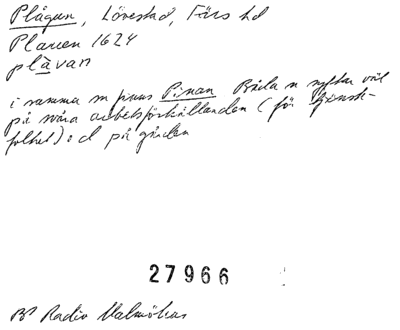 Plågan, Lövestad, Färs hd
Plauen 1624
plåvan
i samma sn finns Pinan Båda n syftar väl
på svåra arbetsförhållanden (för tjänst-
folket) : d på gården
27966
BP Radio Malmöhus